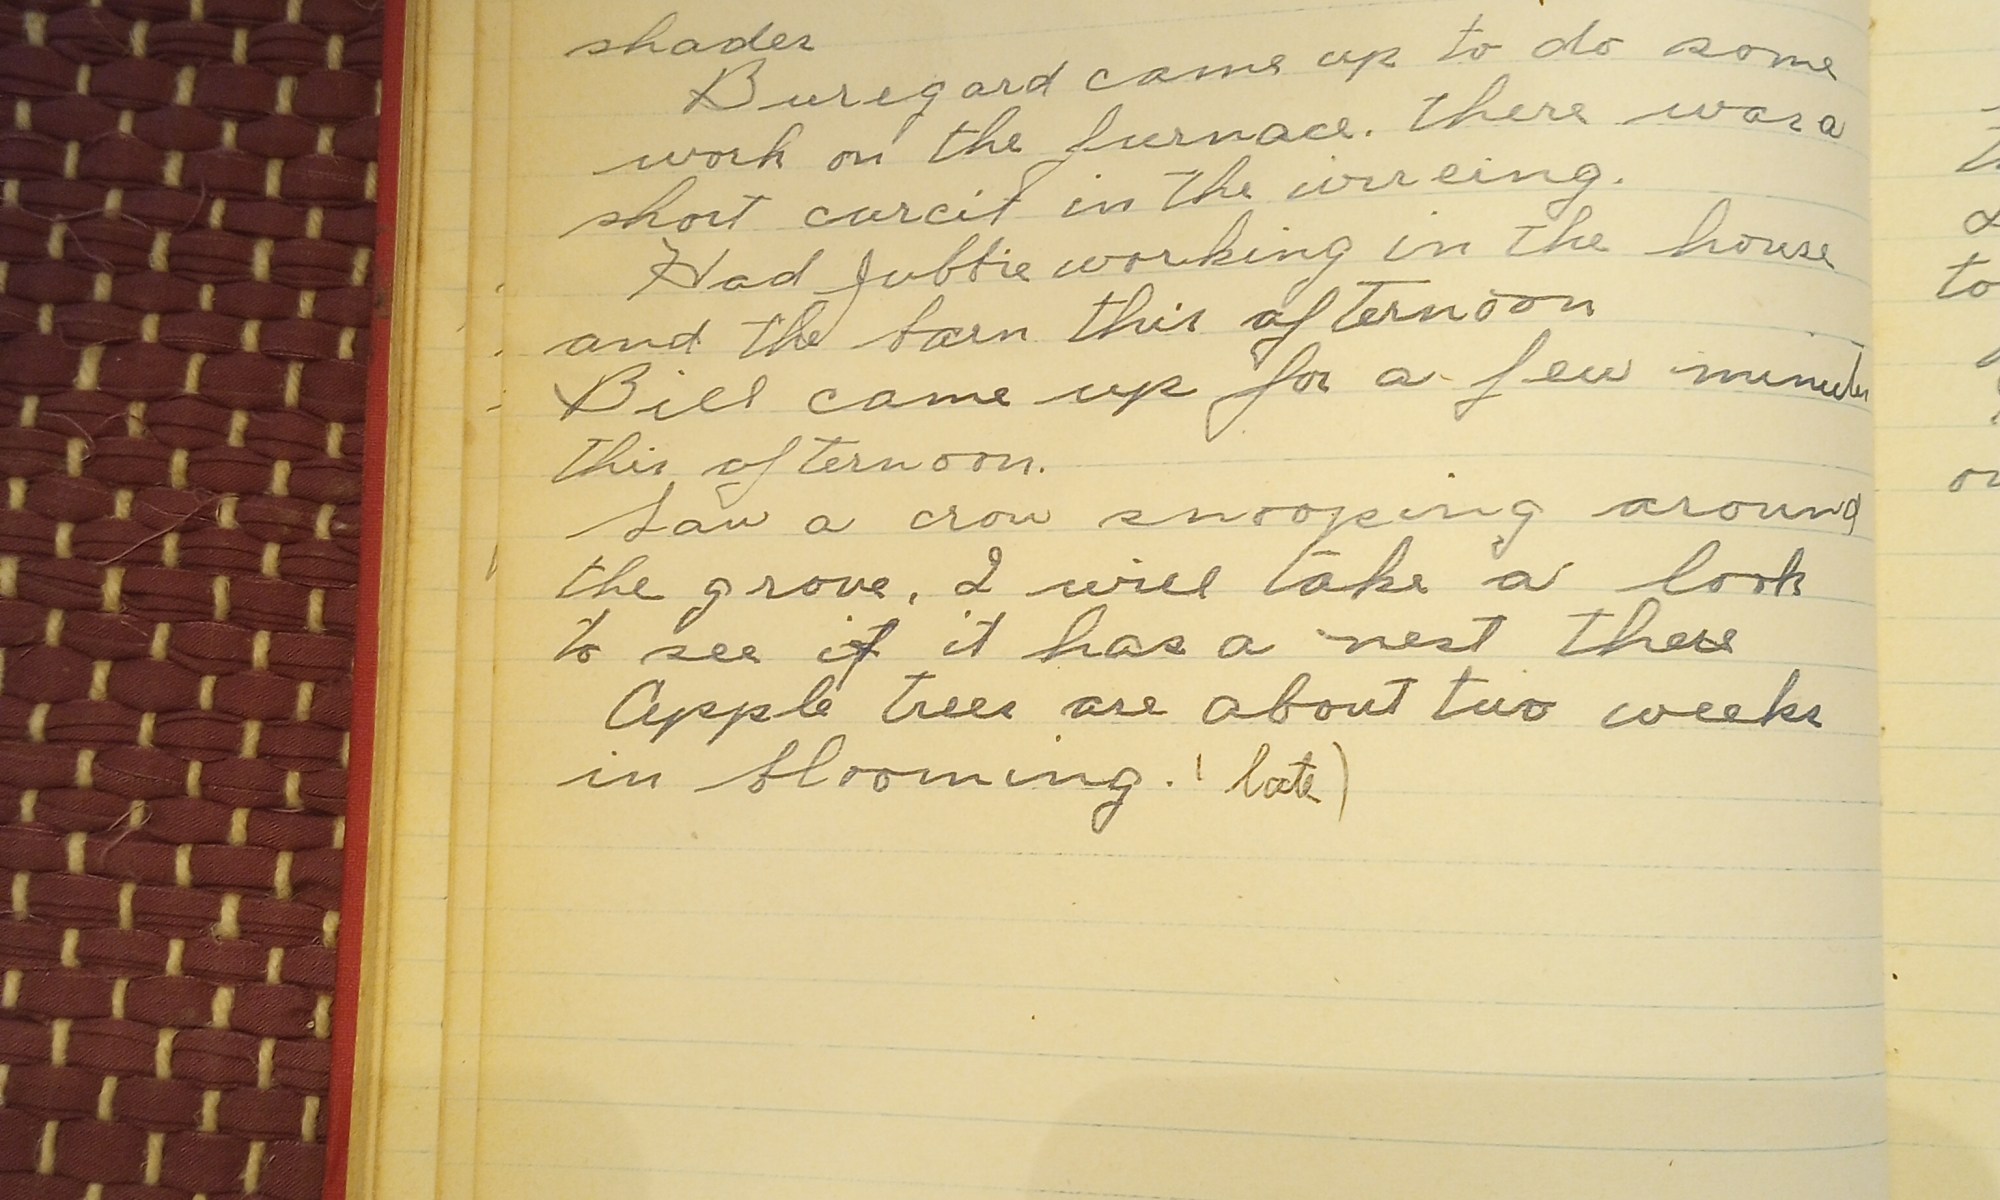 shades
Buregard came up to do some
work on the furnace. There was a
short curcit in the wireing.
Had Jubbie working in the house
and the barn this afternoon
Bill came up for a few minutes
this afternoon.
Saw a crow snooping around
the grove, I will take a look
to see if it has a nest there
Apple trees are about two weeks
in blooming. (late)
to